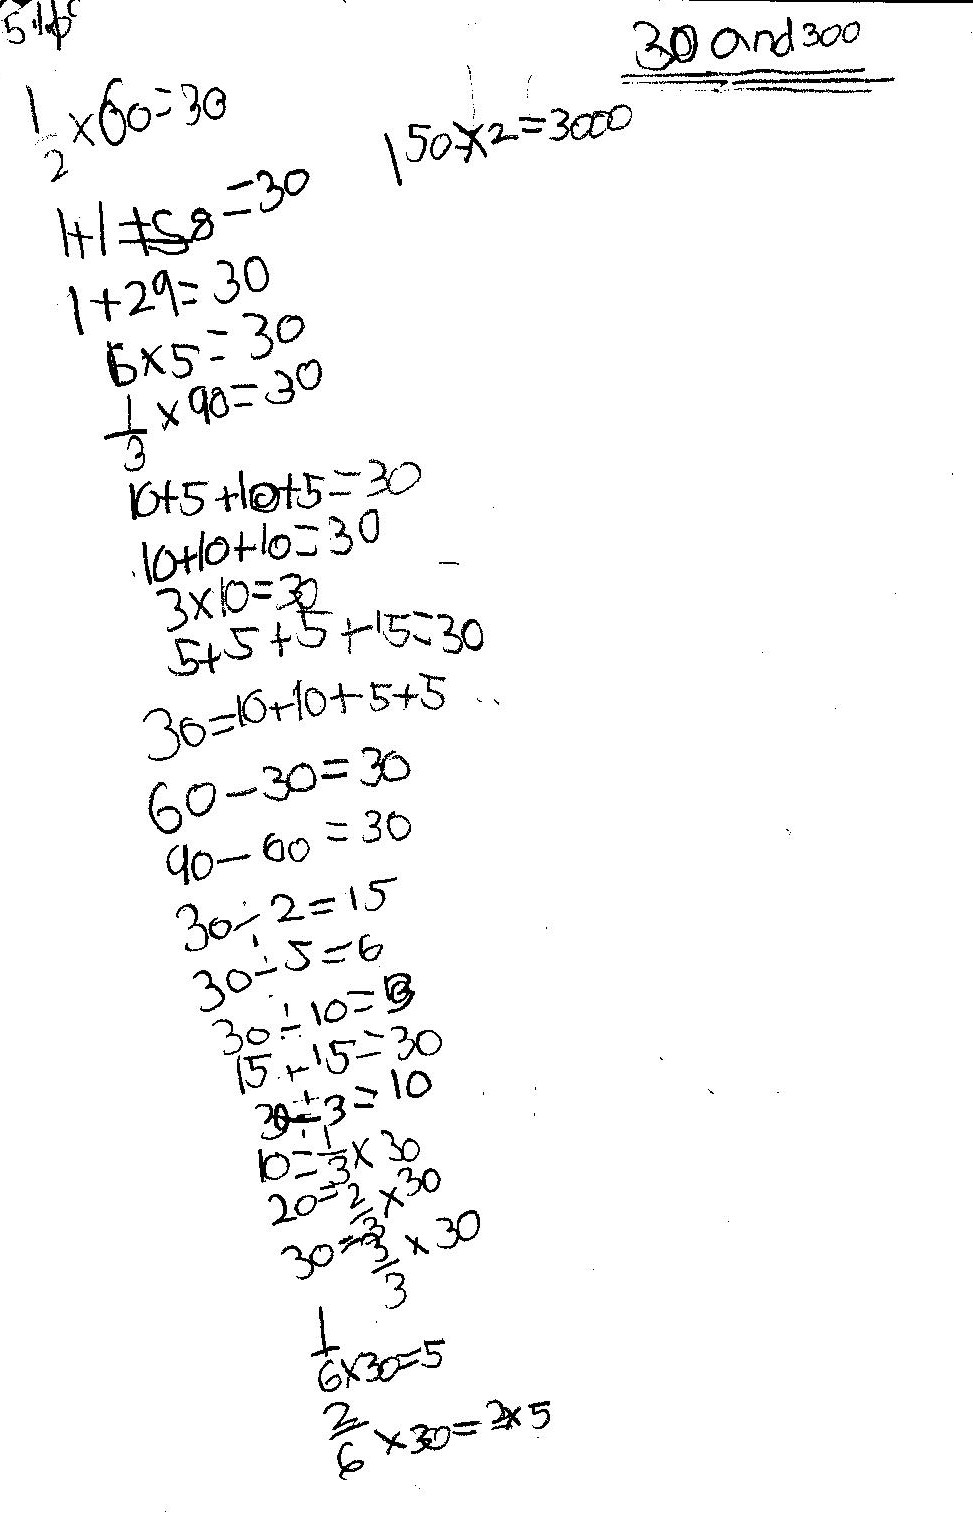 30 and 300
1/2 × 60 = 30
150 × 2 = 3000
1+1+58=30
1+29=30
6×5=30
1/3 × 90=30
10+5+10+5=30
10+10+10=30
3×10=30
5+5+5+15=30
30=10+10+5+5
60-30=30
90-60=30
30÷2=15
30÷5=6
30÷10=3
15+15=30
30÷3=10
10=1/3×30
20=2/3×30
30=3/3×30
1/6×30=5
2/6×30=2×5